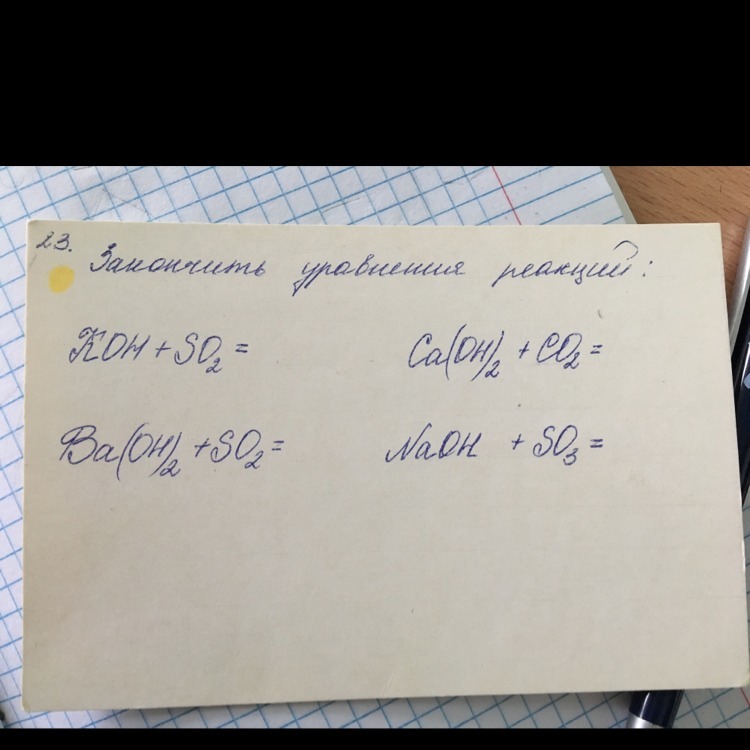 23. Закончить уравнения реакций:
KOH + SO₂ = Ca(OH)₂ + CO₂ =
Ba(OH)₂ + SO₂ = NaOH + SO₃ =